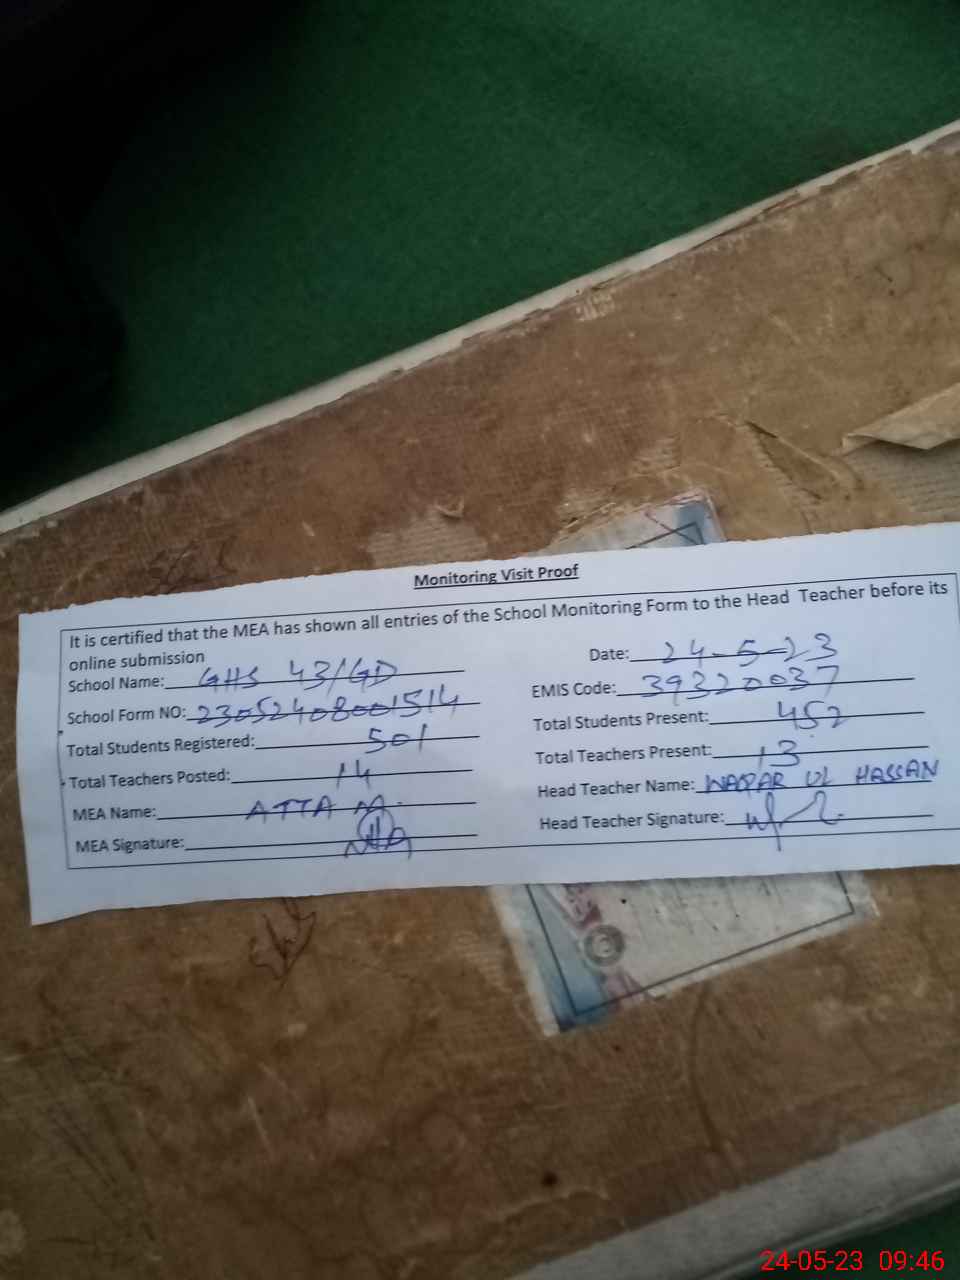 Monitoring Visit Proof
It is certified that the MEA has shown all entries of the School Monitoring Form to the Head Teacher before its
online submission
School Name: GHS 43/GD
Date: 24-5-23
School Form NO: 23052408001514
EMIS Code: 39320037
Total Students Registered: 501
Total Students Present: 452
Total Teachers Posted: 14
Total Teachers Present: 13
MEA Name: ATTA M.
Head Teacher Name: WAQAR UL HASSAN
MEA Signature:
Head Teacher Signature:
24-05-23 09:46